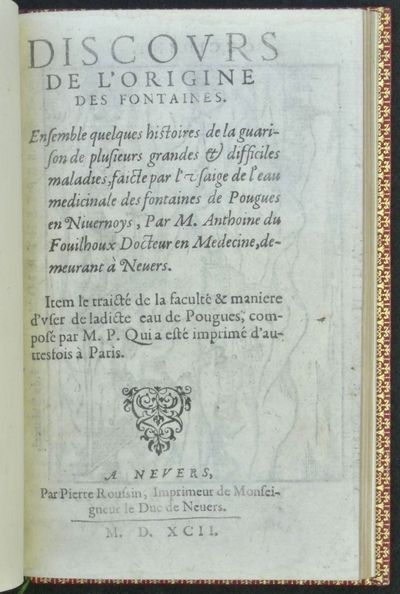 DISCOVRS
DE L'ORIGINE
DES FONTAINES.
Ensemble quelques histoires de la guari-
son de plusieurs grandes & difficiles
maladies, faicte par l'vsaige de l'eau
medicinale des fontaines de Pougues
en Niuernoys, Par M. Anthoine du
Fouilhoux Docteur en Medecine, de-
meurant à Neuers.
Item le traicté de la faculté & maniere
d'vser de ladicte eau de Pougues, com-
posé par M. P. Qui a esté imprimé d'au-
tresfois à Paris.
A NEVERS,
Par Pierre Roussin, Imprimeur de Monsei-
gneur le Duc de Neuers.
M. D. XCII.